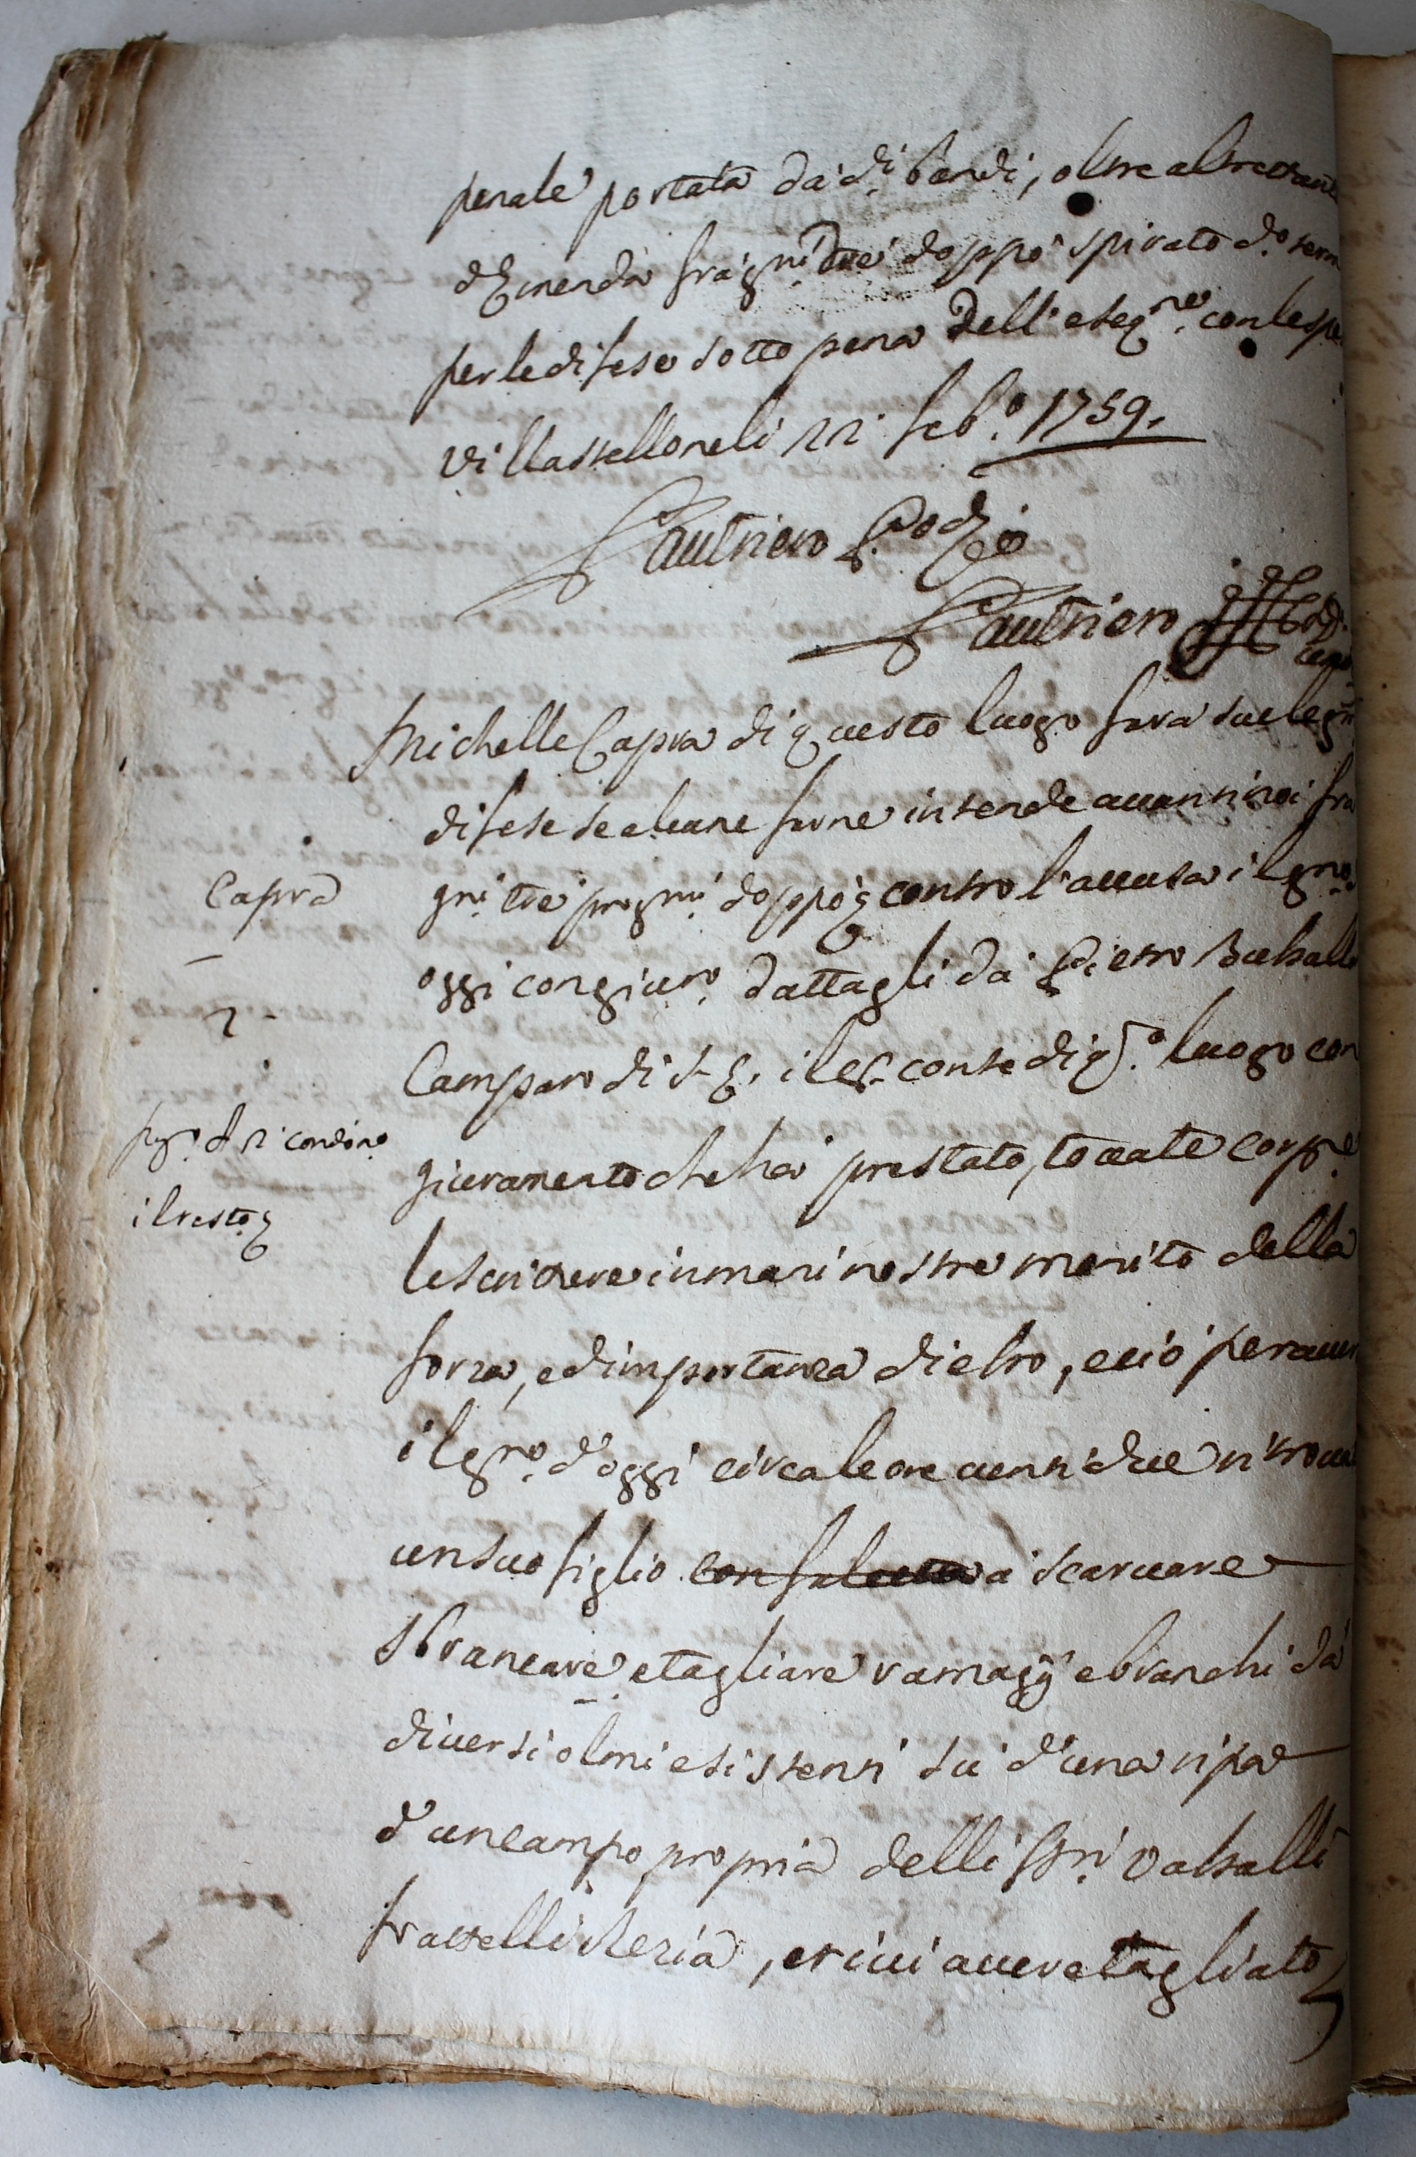 penale portata dà d.i bandi, oltre altrettan
d'emenda frà gni due doppo spirato d.o term
per le difese sotto pena dell'eseq.ne con le spe
Villastellone li 22 feb.o 1759.
Gautriero Pod.
Gautriero
Michelle Capra di questo luogo farà sue leg.
difese se alcune farne intende avanti noi fra
gni tré pros.mi doppo q contro l'accusa il gno
oggi con giur.o dattagli dà Pietro Balsall
Camparo di S. E. il S. conte di q.o luogo con
giuramento che hà prestato, toccate corp.e
le scritture in mani nostre monito della
forza, ed importanza di esso, e ciò per aver
il gno d'oggi circa le ore venti due ritrovat
un suo figlio con falcetto a scarvare
sbrancare e tagliare ramagÿ e branchi dà
diversi olmi esistenti sù d'una ripa
d'un campo propria delli SSri Vassalli
frattelli Neria, et ivi aver etagliato
Capra
2
pag.o £ 2 condon.o
il resto